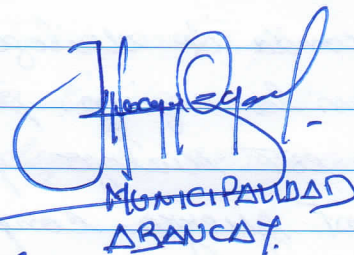 MUNICIPALIDAD
ABANCAY.